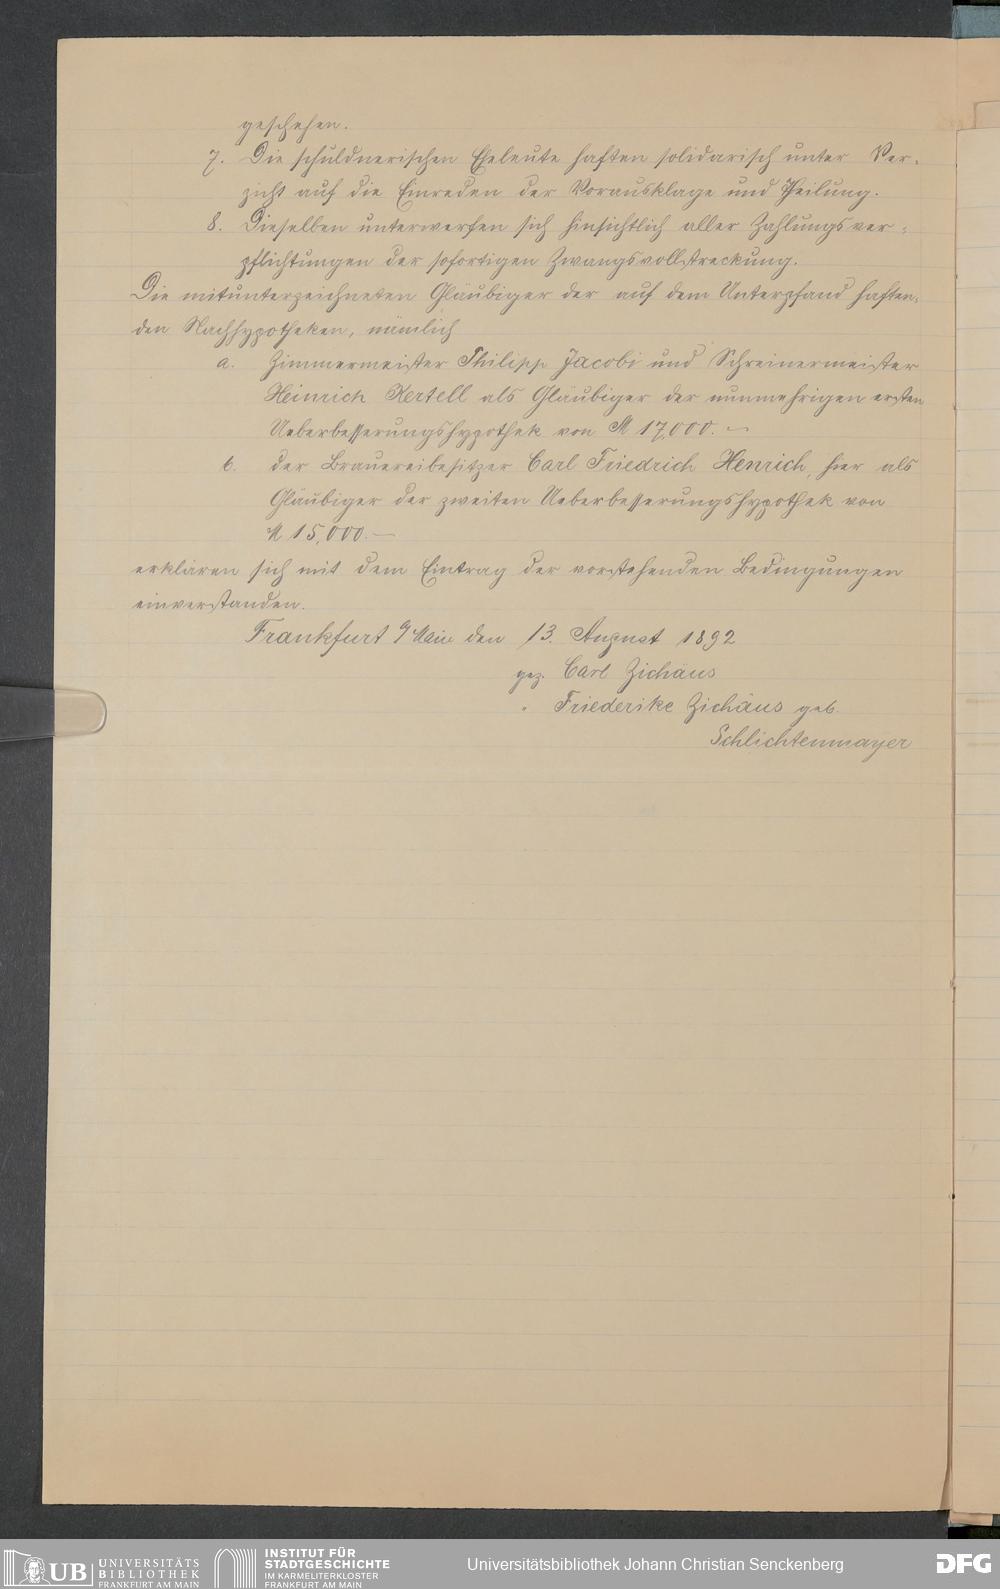 geschehen.
7. Die schuldnerischen Eheleute haften solidarisch unter Ver-
zicht auf die Einreden der Vorausklage und Theilung.
8. Dieselben unterwerfen sich hinsichtlich aller Zahlungsver-
pflichtungen der sofortigen Zwangsvollstreckung.
Die mitunterzeichneten Gläubiger der auf dem Unterpfand haften-
den Nachhypotheken, nämlich
a. Zimmermeister Philipp Jacobi und Schreinermeister
Heinrich Kertell als Gläubiger der nunmehrigen ersten
Ueberbesserungshypothek von M 17,000.—
b. der Brauereibesitzer Carl Friedrich Henrich, hier als
Gläubiger der zweiten Ueberbesserungshypothek von
M 15,000.—
erklären sich mit dem Eintrag der vorstehenden Bedingungen
einverstanden.
Frankfurt a/Main den 13. August 1892
gez. Carl Zichäus
" Friederike Zichäus geb.
Schlichtenmayer
UB UNIVERSITÄTS
BIBLIOTHEK
FRANKFURT AM MAIN
INSTITUT FÜR
STADTGESCHICHTE
IM KARMELITERKLOSTER
FRANKFURT AM MAIN
Universitätsbibliothek Johann Christian Senckenberg
DFG